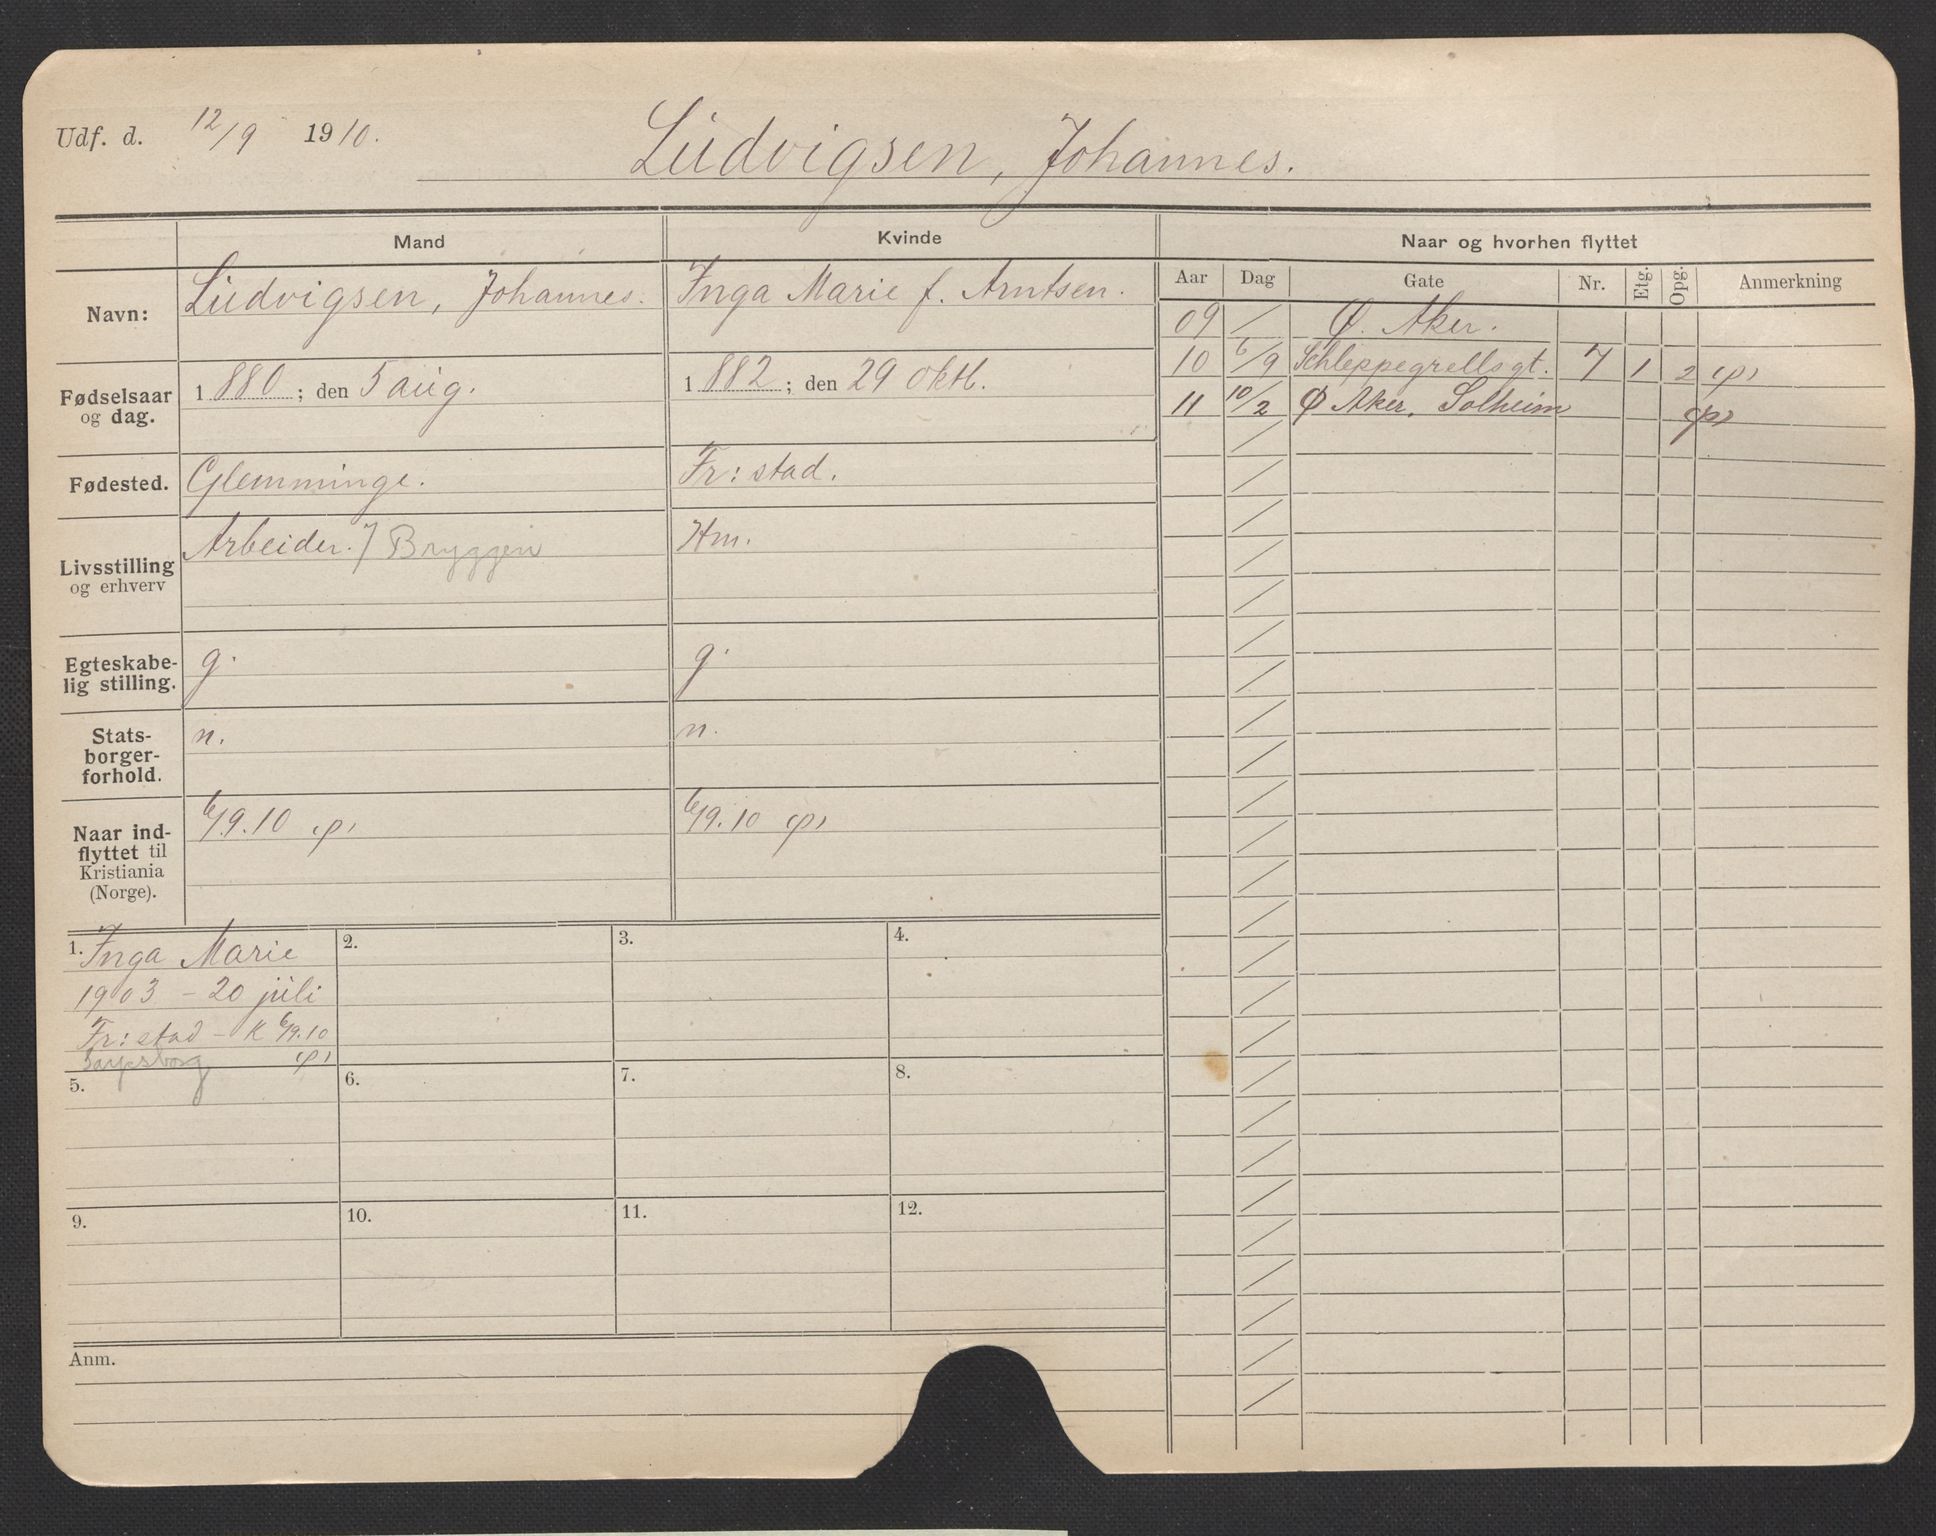 Udf. d. 12/9 1910. Ludvigsen, Johannes.
Mand Kvinde Naar og hvorhen flyttet
Aar Dag Gate Nr. Etg. Opg. Anmerkning
Navn: Ludvigsen, Johannes. Inga Marie f. Arntsen.
09 / Ø. Aker.
10 6/9 Schleppegrellsgt. 7 1 2
11 10/2 Ø Aker. Solheim
Fødselsaar
og dag.
1880; den 5 aug. 1882; den 29 oktb.
Fødested. Glemminge. Fr:stad.
Livsstilling
og erhverv
Arbeider. / Bryggeri Hm.
Egteskabe-
lig stilling.
g. g.
Stats-
borger-
forhold.
n. n.
Naar ind-
flyttet til
Kristiania
(Norge).
6/9.10 6/9.10
1. Inga Marie 2. 3. 4.
1903 - 20 juli
Fr:stad - K 6/9.10
5. 6. 7. 8.
9. 10. 11. 12.
Anm.